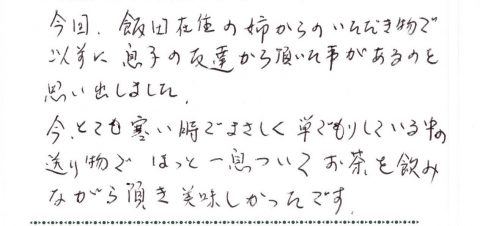 今回、飯田在住の姉からのいただき物で
以前に息子の友達から頂いた事があるのを
思い出しました。
今、とても寒い時でまさしく巣ごもりしている中の
送り物でほっと一息ついてお茶を飲み
ながら頂き美味しかったです。